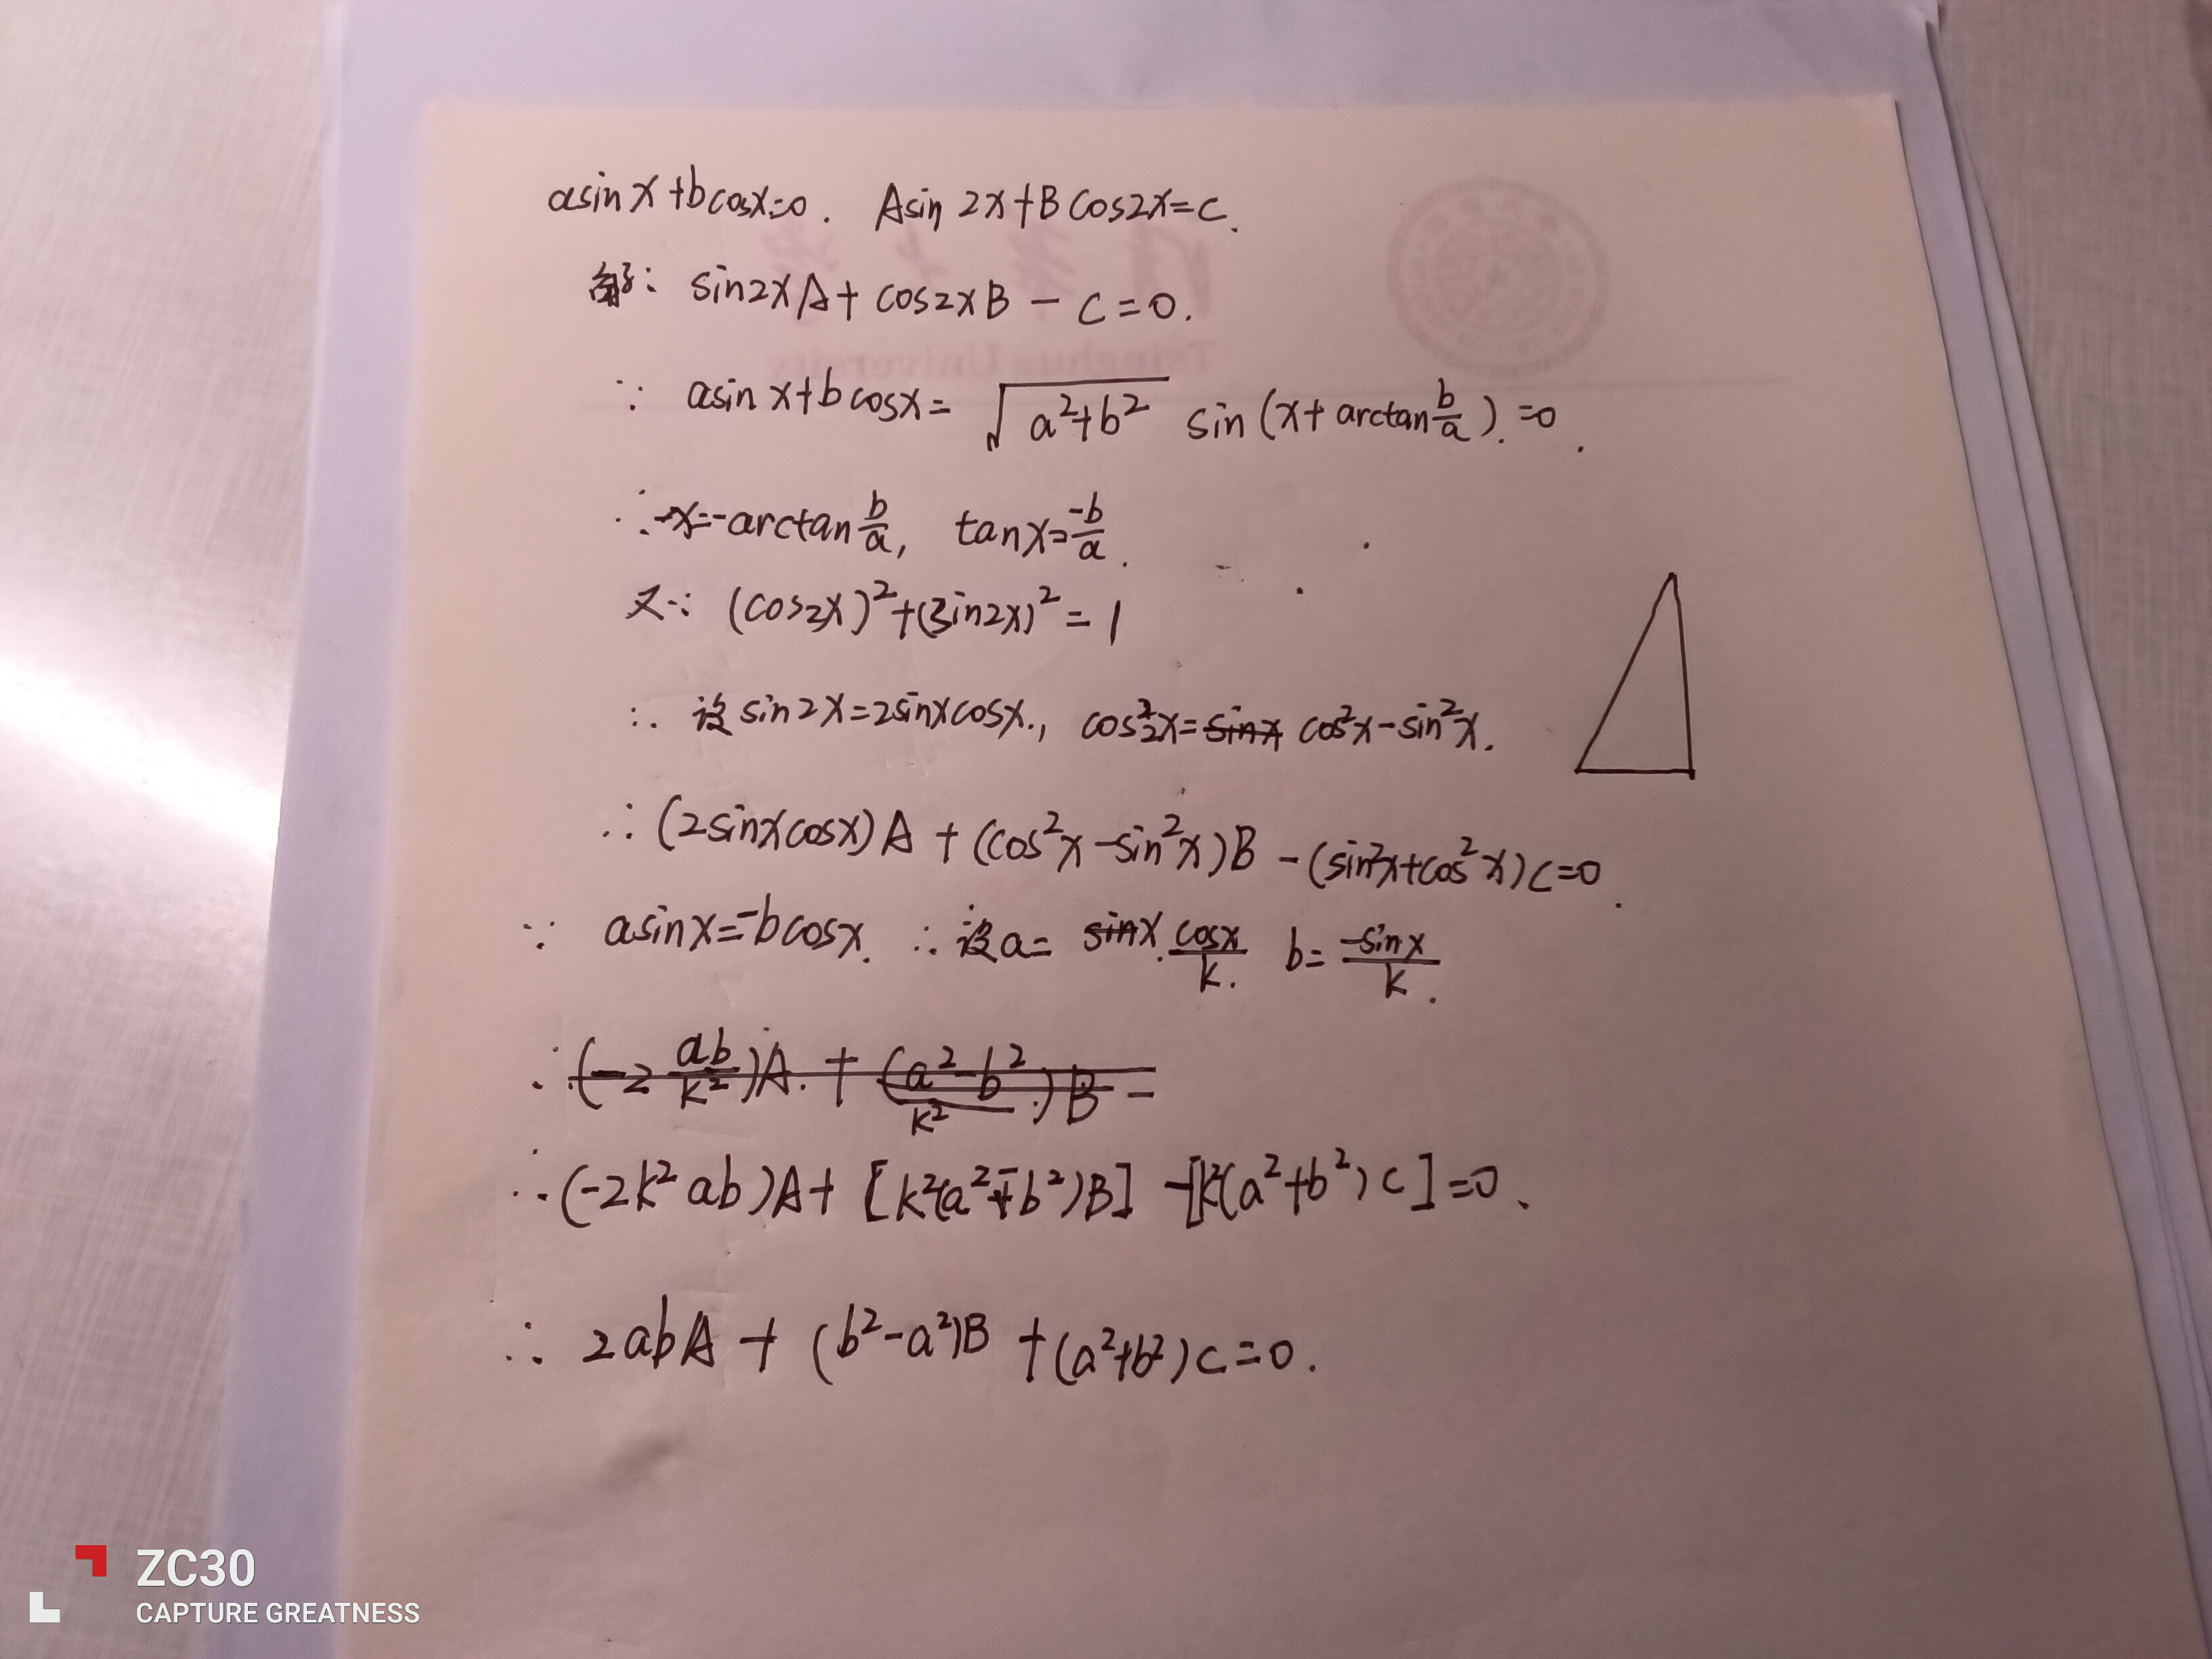 asinx+bcosx=0. Asin2x+Bcos2x=C.
解: sin2xA+cos2xB-C=0.
∵ asinx+bcosx=√(a²+b²) sin(x+arctan b/a).=0.
∴x=-arctan b/a, tanx=-b/a.
又∵ (cos2x)²+(sin2x)²=1
∴ 设sin2x=2sinxcosx., cos²2x=sinx cos²x-sin²x.
∴(2sinxcosx)A+(cos²x-sin²x)B-(sin²x+cos²x)C=0.
∵ asinx=-bcosx. ∴设a= sinx. cosx/k. b=-sinx/k.
∴(-2 ab/k²)A.+(a²-b²/k².)B=
∴(-2k²ab)A+[k²(a²-b²)B]-[k²(a²+b²)C]=0.
∴ 2abA+(b²-a²)B+(a²+b²)C=0.
Tsinghua University
ZC30
CAPTURE GREATNESS